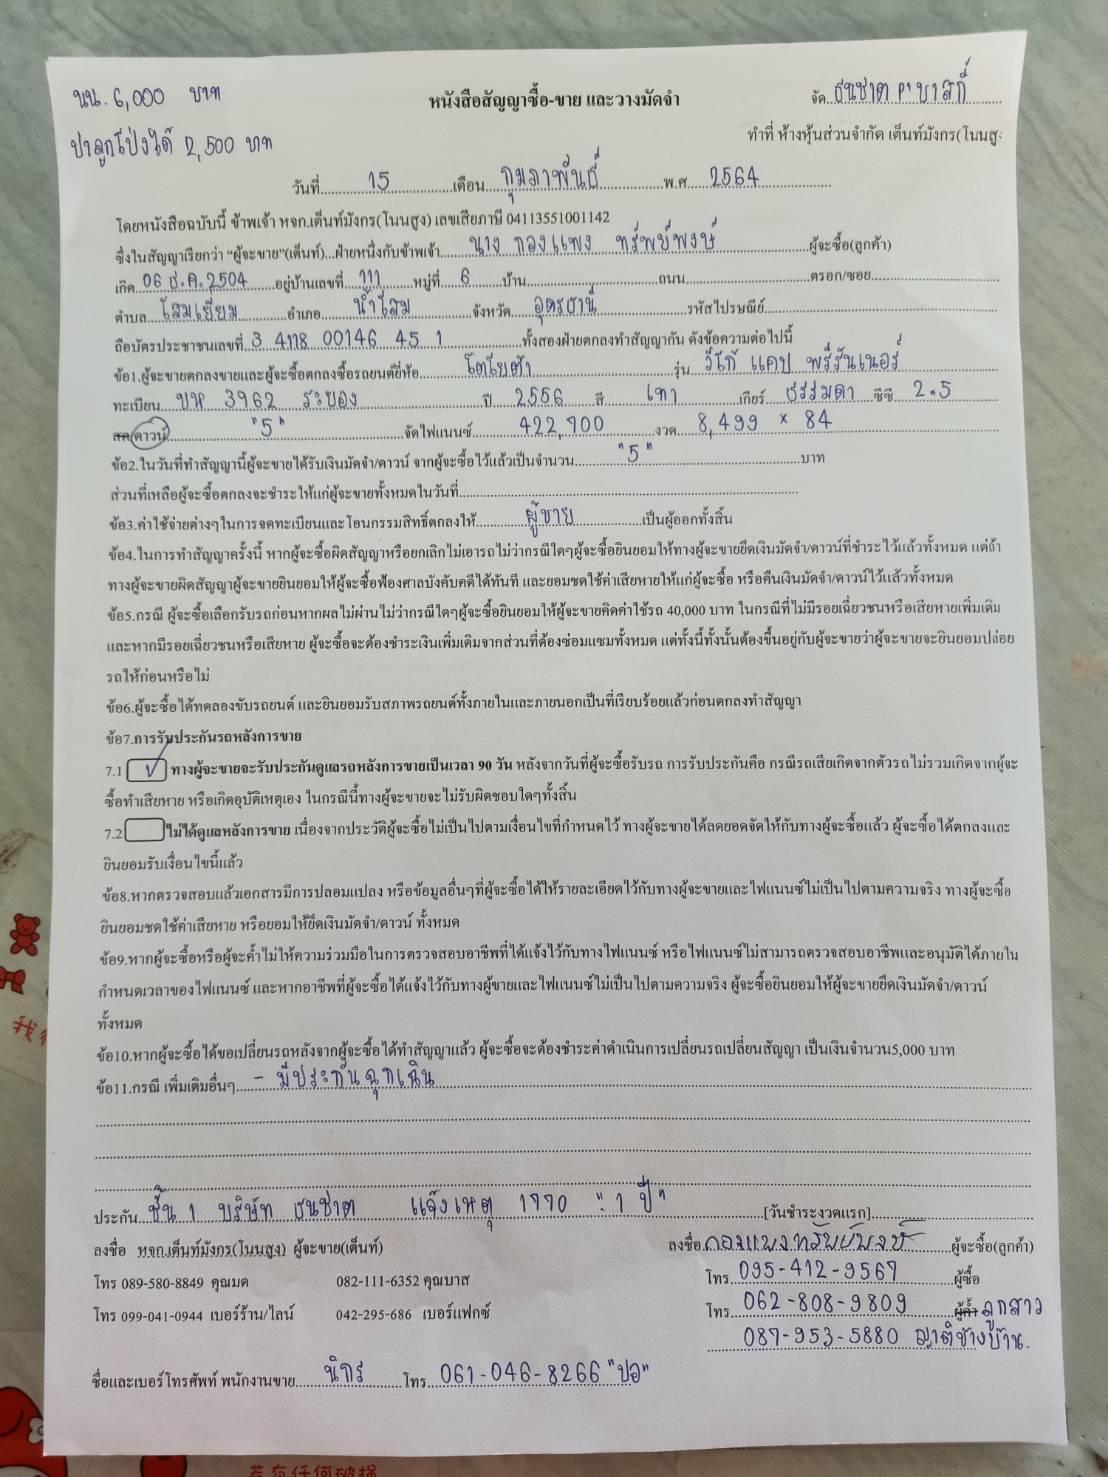 นน. 6,000 บาท
ป่าลูกโป่งได้ 2,500 บาท
หนังสือสัญญาซื้อ-ขาย และวางมัดจำ
จัด ธนชาต P' บาสกี้
ทำที่ ห้างหุ้นส่วนจำกัด เต็นท์มังกร(โนนสูง
วันที่ 15 เดือน กุมภาพันธ์ พ.ศ. 2564
โดยหนังสือฉบับนี้ ข้าพเจ้า หจก.เต็นท์มังกร(โนนสูง) เลขเสียภาษี 04113551001142
ซึ่งในสัญญาเรียกว่า "ผู้จะขาย"(เต็นท์)...ฝ่ายหนึ่งกับข้าพเจ้า นาง กองแพง ทรัพย์พงษ์ ผู้จะซื้อ(ลูกค้า)
เกิด 06 ธ.ค. 2504 อยู่บ้านเลขที่ 111 หมู่ที่ 6 บ้าน ถนน ตรอก/ซอย
ตำบล โสมเยี่ยม อำเภอ น้ำโสม จังหวัด อุดรธานี รหัสไปรษณีย์
ถือบัตรประชาชนเลขที่ 3 4118 00146 45 1 ทั้งสองฝ่ายตกลงทำสัญญากัน ดังข้อความต่อไปนี้
ข้อ1.ผู้จะขายตกลงขายและผู้จะซื้อตกลงซื้อรถยนต์ยี่ห้อ โตโยต้า รุ่น วีโก้ แคป พรีรันเนอร์
ทะเบียน บห 3962 ระยอง ปี 2556 สี เทา เกียร์ ธรรมดา ซีซี 2.5
สด/ดาวน์ "5" จัดไฟแนนซ์ 422,700 งวด 8,499 x 84
ข้อ2.ในวันที่ทำสัญญานี้ผู้จะขายได้รับเงินมัดจำ/ดาวน์ จากผู้จะซื้อไว้แล้วเป็นจำนวน "5" บาท
ส่วนที่เหลือผู้จะซื้อตกลงจะชำระให้แก่ผู้จะขายทั้งหมดในวันที่
ข้อ3.ค่าใช้จ่ายต่างๆในการจดทะเบียนและโอนกรรมสิทธิ์ตกลงให้ ผู้ขาย เป็นผู้ออกทั้งสิ้น
ข้อ4.ในการทำสัญญาครั้งนี้ หากผู้จะซื้อผิดสัญญาหรือยกเลิกไม่เอารถ ไม่ว่ากรณีใดๆผู้จะซื้อยินยอมให้ทางผู้จะขายยึดเงินมัดจำ/ดาวน์ที่ชำระไว้แล้วทั้งหมด แต่ถ้า
ทางผู้จะขายผิดสัญญาผู้จะขายยินยอมให้ผู้จะซื้อฟ้องศาลบังคับคดีได้ทันที และยอมชดใช้ค่าเสียหายให้แก่ผู้จะซื้อ หรือคืนเงินมัดจำ/ดาวน์ไว้แล้วทั้งหมด
ข้อ5.กรณี ผู้จะซื้อเลือกรับรถก่อนหากผลไม่ผ่านไม่ว่ากรณีใดๆผู้จะซื้อยินยอมให้ผู้จะขายคิดค่าใช้รถ 40,000 บาท ในกรณีที่ไม่มีรอยเฉี่ยวชนหรือเสียหายเพิ่มเติม
และหากมีรอยเฉี่ยวชนหรือเสียหาย ผู้จะซื้อจะต้องชำระเงินเพิ่มเติมจากส่วนที่ต้องซ่อมแซมทั้งหมด แต่ทั้งนี้ทั้งนั้นต้องขึ้นอยู่กับผู้จะขายว่าผู้จะขายจะยินยอมปล่อย
รถให้ก่อนหรือไม่
ข้อ6.ผู้จะซื้อได้ทดลองขับรถยนต์ และยินยอมรับสภาพรถยนต์ทั้งภายในและภายนอกเป็นที่เรียบร้อยแล้วก่อนตกลงทำสัญญา
ข้อ7.การรับประกันรถหลังการขาย
7.1 ✓ ทางผู้จะขายจะรับประกันดูแลรถหลังการขายเป็นเวลา 90 วัน หลังจากวันที่ผู้จะซื้อรับรถ การรับประกันคือ กรณีรถเสียเกิดจากตัวรถไม่รวมเกิดจากผู้จะ
ซื้อทำเสียหาย หรือเกิดอุบัติเหตุเอง ในกรณีนี้ทางผู้จะขายจะไม่รับผิดชอบใดๆทั้งสิ้น
7.2 ไม่ได้ดูแลหลังการขาย เนื่องจากประวัติผู้จะซื้อไม่เป็นไปตามเงื่อนไขที่กำหนดไว้ ทางผู้จะขายได้ลดยอดจัดให้กับทางผู้จะซื้อแล้ว ผู้จะซื้อได้ตกลงและ
ยินยอมรับเงื่อนไขนี้แล้ว
ข้อ8.หากตรวจสอบแล้วเอกสารมีการปลอมแปลง หรือข้อมูลอื่นๆที่ผู้จะซื้อได้ให้รายละเอียดไว้กับทางผู้จะขายและไฟแนนซ์ไม่เป็นไปตามความจริง ทางผู้จะซื้อ
ยินยอมชดใช้ค่าเสียหาย หรือยอมให้ยึดเงินมัดจำ/ดาวน์ ทั้งหมด
ข้อ9.หากผู้จะซื้อหรือผู้จะค้ำไม่ให้ความร่วมมือในการตรวจสอบอาชีพที่ได้แจ้งไว้กับทางไฟแนนซ์ หรือไฟแนนซ์ไม่สามารถตรวจสอบอาชีพและอนุมัติได้ภายใน
กำหนดเวลาของไฟแนนซ์ และหากอาชีพที่ผู้จะซื้อได้แจ้งไว้กับทางผู้ขายและไฟแนนซ์ไม่เป็นไปตามความจริง ผู้จะซื้อยินยอมให้ผู้จะขายยึดเงินมัดจำ/ดาวน์
ทั้งหมด
ข้อ10.หากผู้จะซื้อได้ขอเปลี่ยนรถหลังจากผู้จะซื้อได้ทำสัญญาแล้ว ผู้จะซื้อจะต้องชำระค่าดำเนินการเปลี่ยนรถเปลี่ยนสัญญา เป็นเงินจำนวน5,000 บาท
ข้อ11.กรณี เพิ่มเติมอื่นๆ - มีประกันฉุกเฉิน
ประกัน ชั้น 1 บริษัท ธนชาต แจ้งเหตุ 1770 "1 ปี" [วันชำระงวดแรก]
ลงชื่อ หจก.เต็นท์มังกร(โนนสูง) ผู้จะขาย(เต็นท์) ลงชื่อ กองแพง ทรัพย์พงษ์ ผู้จะซื้อ(ลูกค้า)
โทร 089-580-8849 คุณมด 082-111-6352 คุณบาส โทร 095-412-9567 ผู้ซื้อ
โทร 099-041-0944 เบอร์ร้าน/ไลน์ 042-295-686 เบอร์แฟกซ์ โทร 062-808-9809 ผู้ค้ำ ลูกสาว
087-953-5880 ญาติข้างบ้าน.
ชื่อและเบอร์โทรศัพท์ พนักงานขาย นิกร โทร 061-046-8266 "ปอ"
若有任何破损